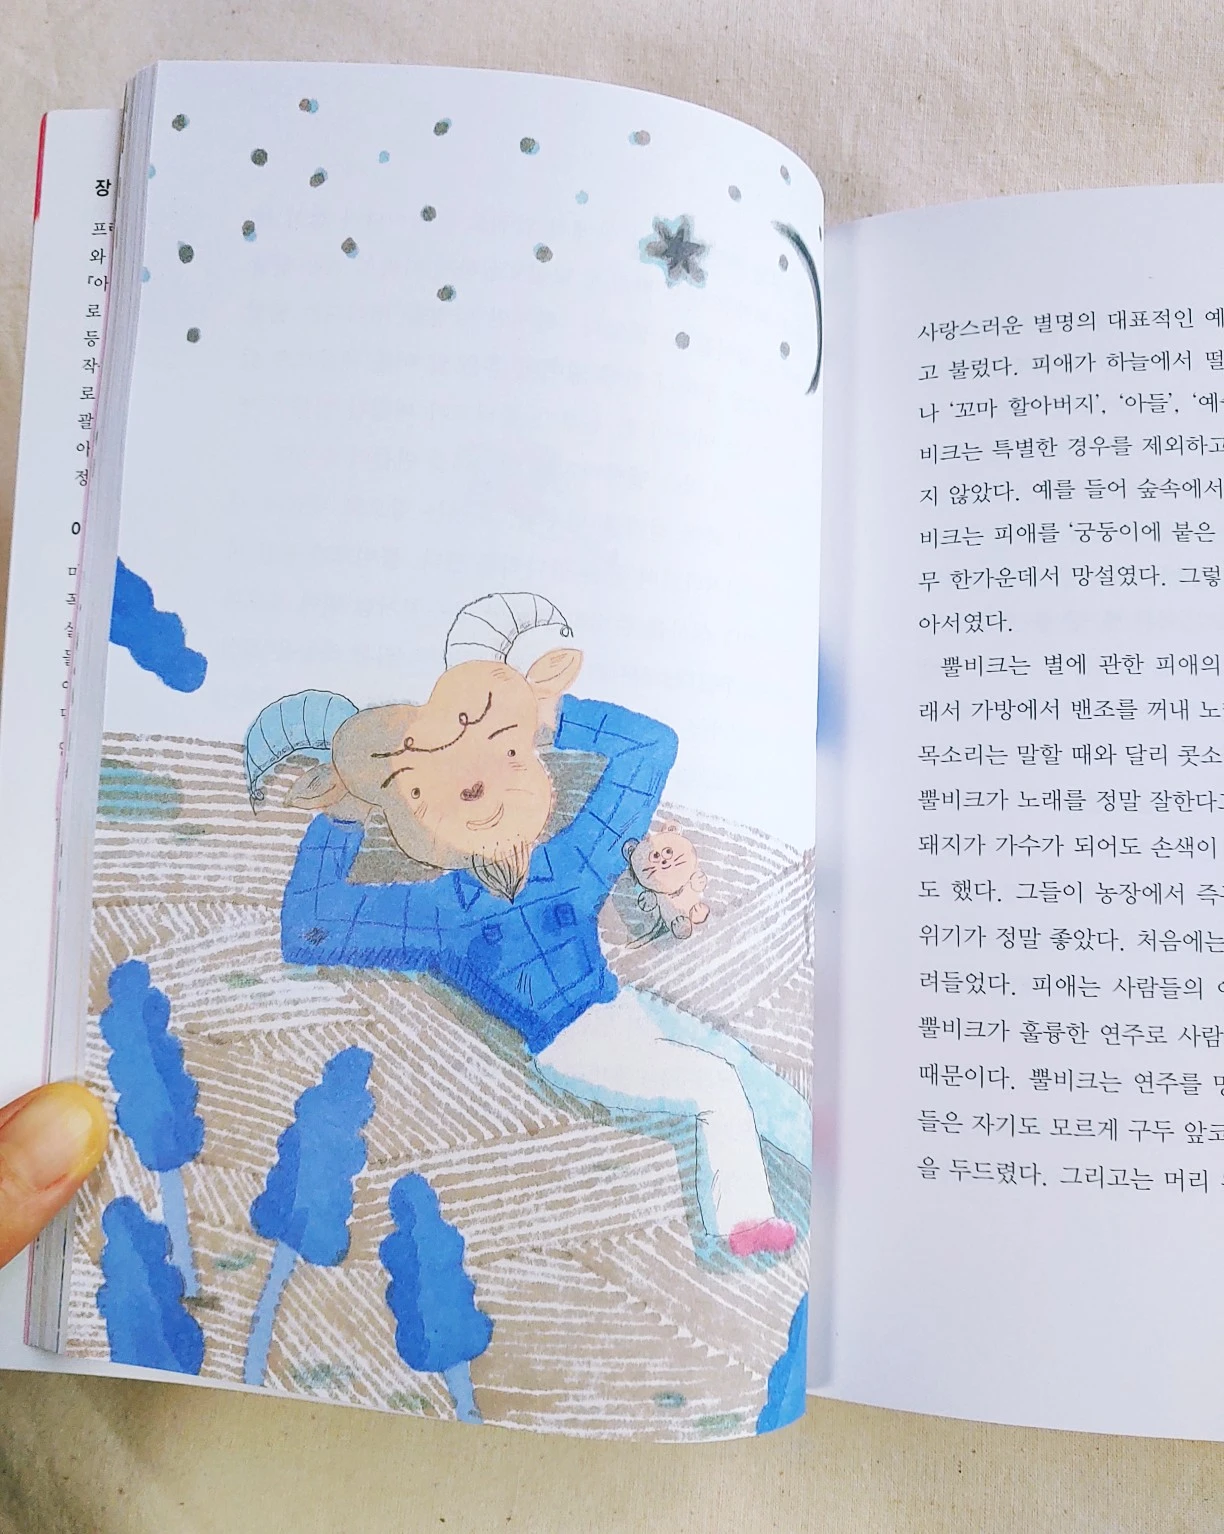 장
프
와
『아
로
등
작
로
괄
아
정
사랑스러운 별명의 대표적인 예
고 불렀다. 피애가 하늘에서 떨
나 ‘꼬마 할아버지’, ‘아들’,
비크는 특별한 경우를 제외하고
지 않았다. 예를 들어 숲속에서
비크는 피애를 ‘궁둥이에 붙은
무 한가운데서 망설였다. 그렇
아서였다.
뿔비크는 별에 관한 피애의
래서 가방에서 밴조를 꺼내 노
목소리는 말할 때와 달리 콧소
뿔비크가 노래를 정말 잘한다고
돼지가 가수가 되어도 손색이
도 했다. 그들이 농장에서 즉
위기가 정말 좋았다. 처음에는
려들었다. 피애는 사람들의
뿔비크가 훌륭한 연주로 사람
때문이다. 뿔비크는 연주를
들은 자기도 모르게 구두 앞코
을 두드렸다. 그리고는 머리